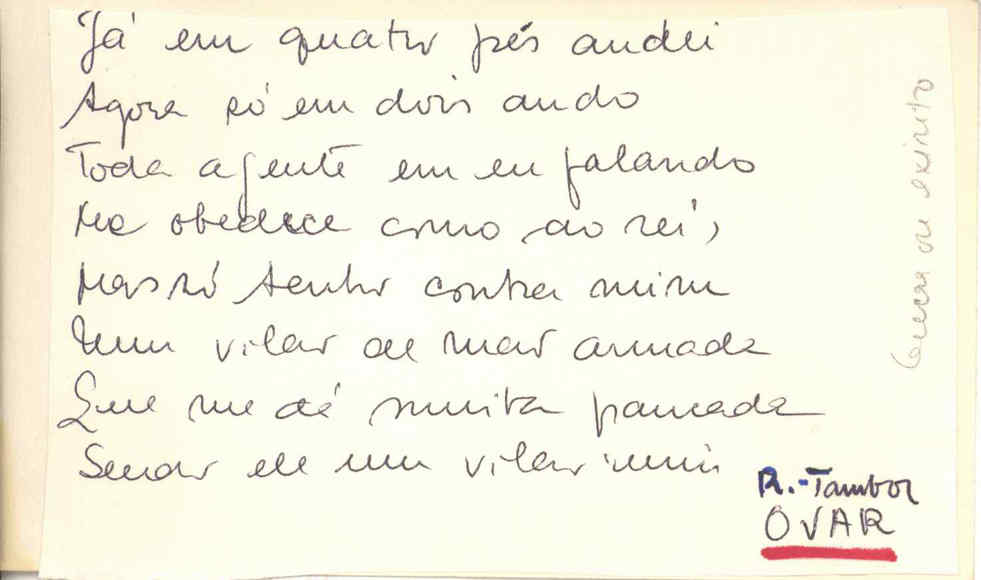 Já em quatro pés andei
Agora só em dois ando
Toda a gente em eu falando
Me obedece como ao rei,
Mas só tenho contra mim
Um vilão de mão armada
Que me dá muita pancada
Sendo ele um vilão ruim
R.-Tambor
OVAR
ou